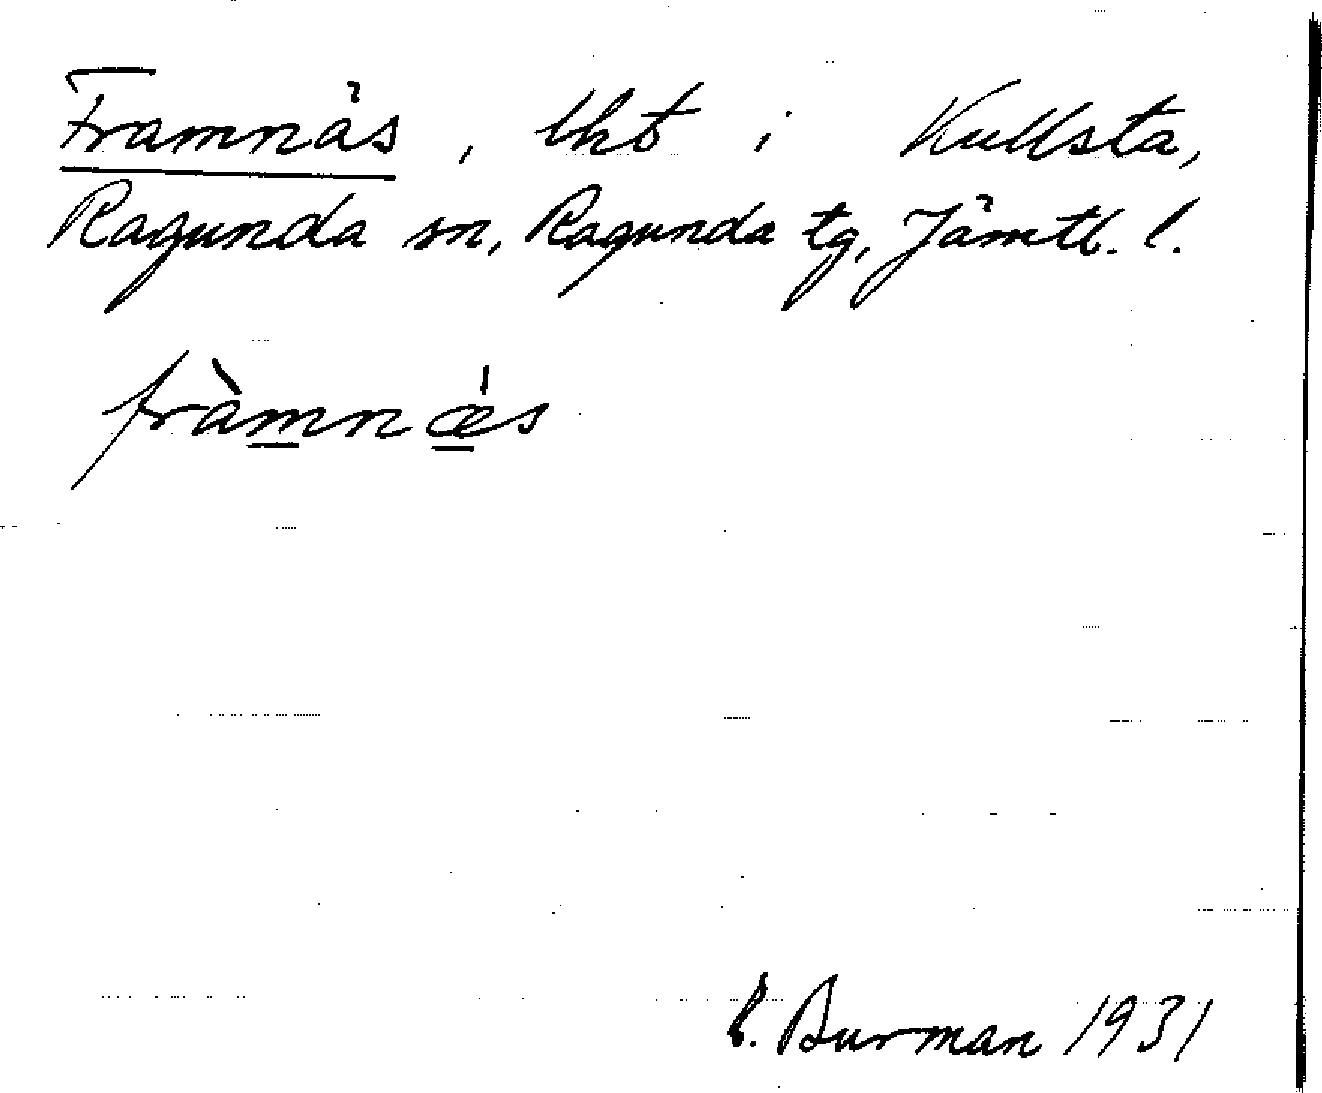 Framnäs, lht i Kullsta,
Ragunda sn, Ragunda tg, Jämtl. l.
fràmnǽs
E. Burman 1931